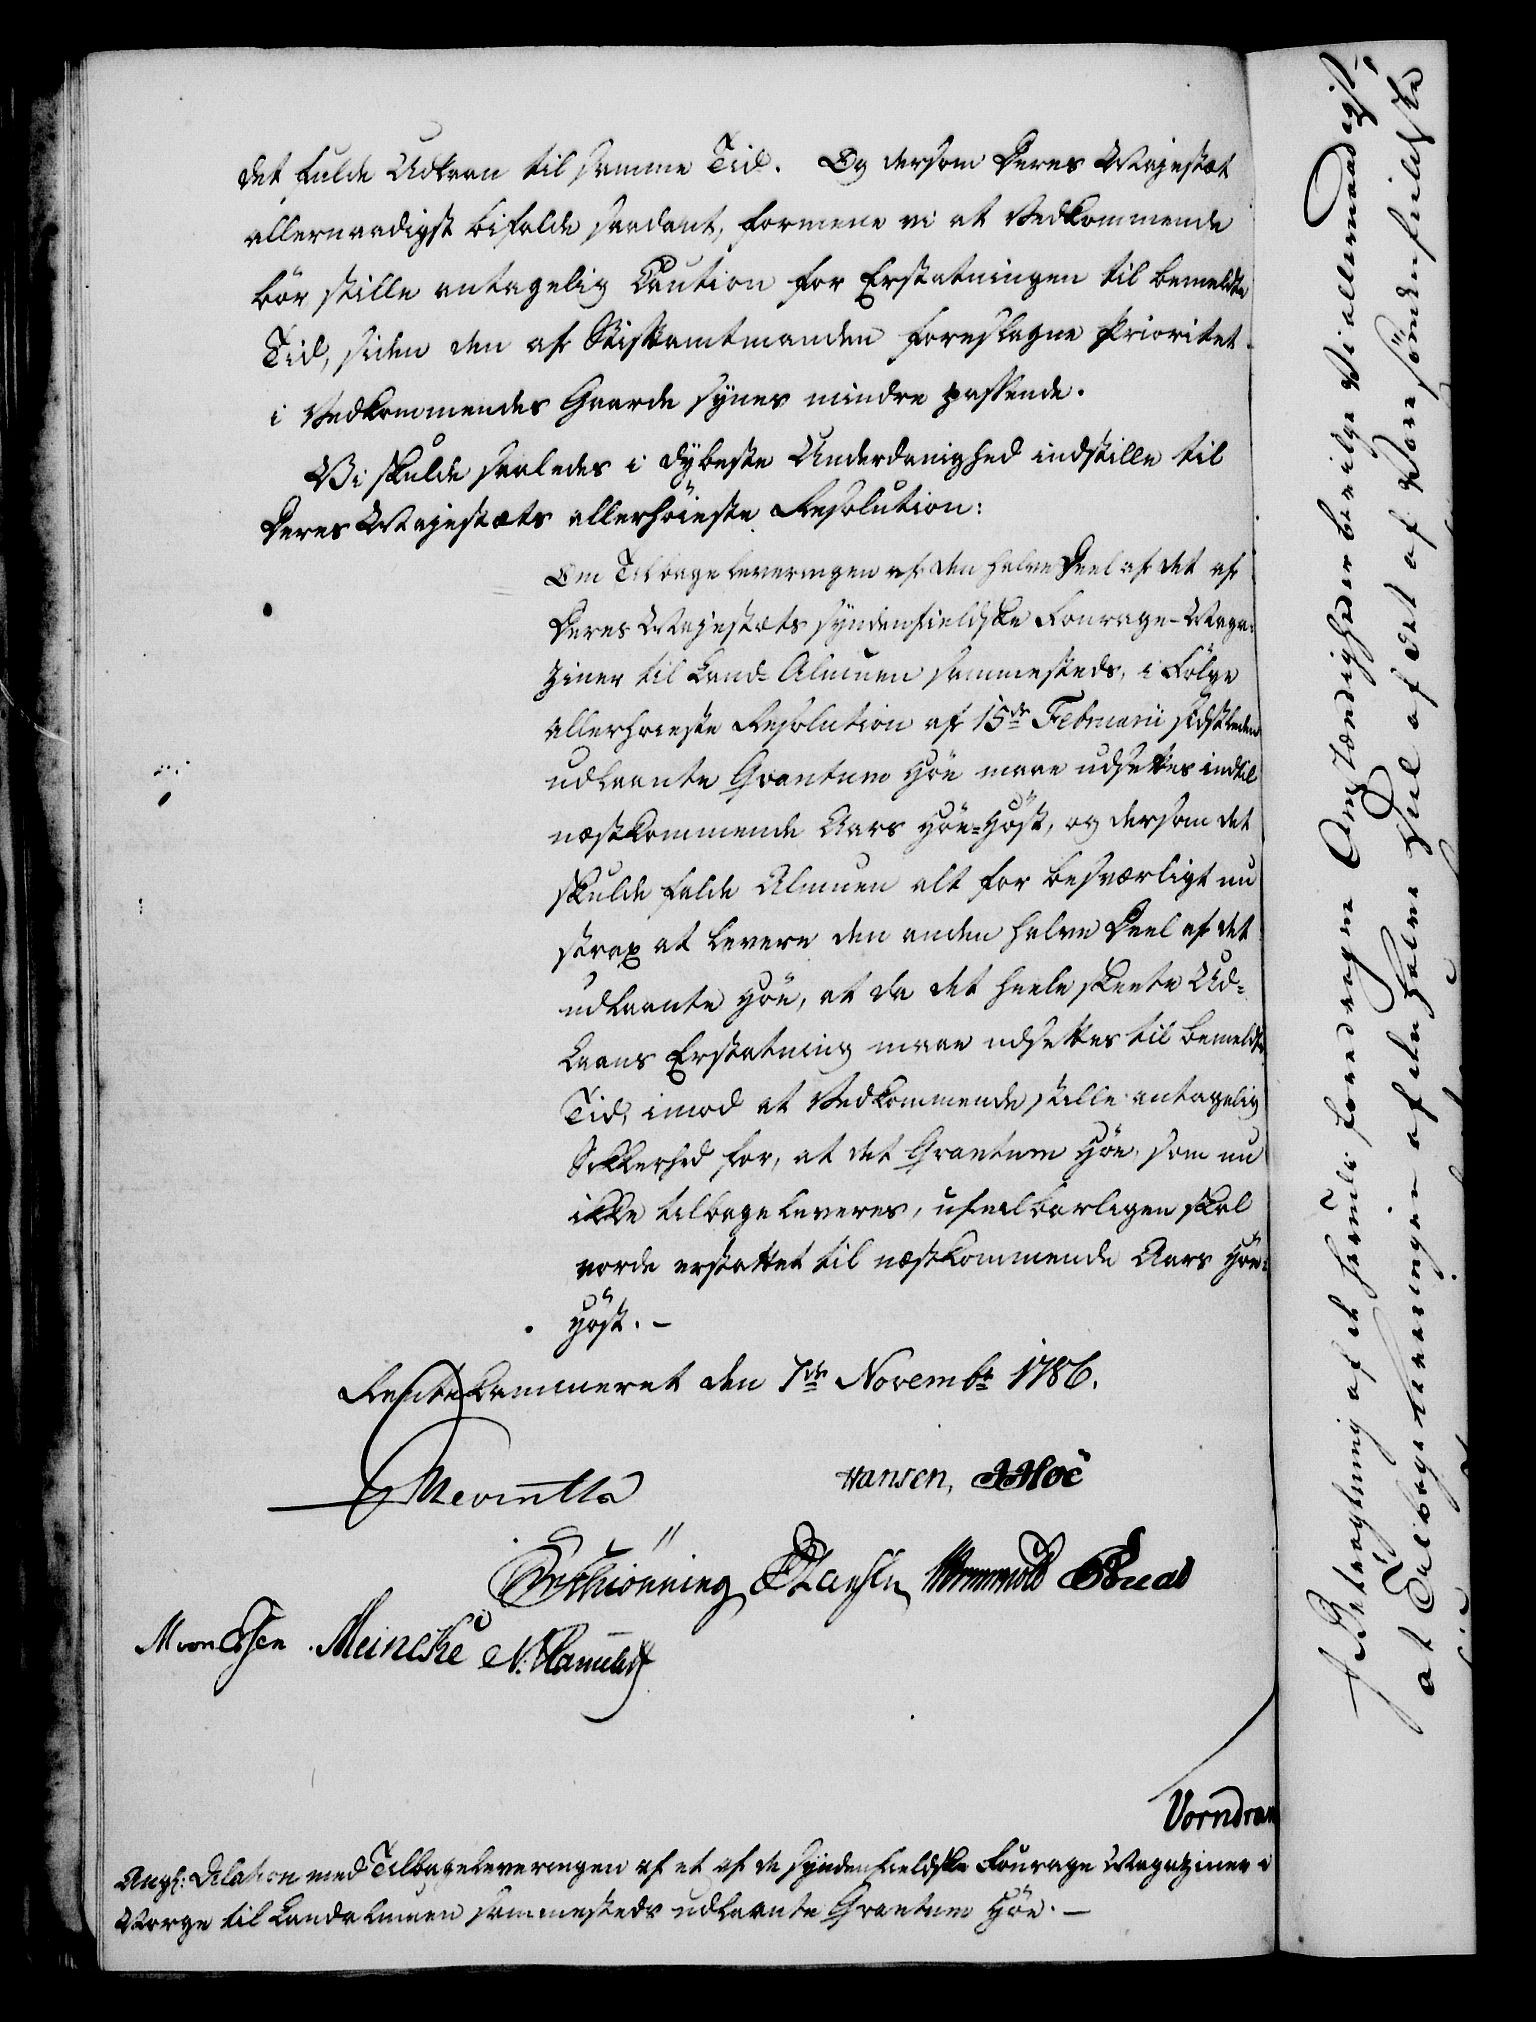 det fulde Udlaan til samme Tid. Og dersom Deres Majestæt
allernaadigst bifalde saadant, formene vi at Vedkommende
bör stille antagelig Caution for Erstatningen til bemeldte
Tid, siden den af Stiftamtmanden foreslagne Prioritet
i Vedkommendes Gaarde synes mindre passende.
Vi skulde saaledes i dybeste Underdanighed indstille til
Deres Majestæts allerhöieste Resolution:
Om Tilbageleveringen af den halve Deel af det af
Deres Majestæts syndenfieldske Fourage-Maga-
ziner til Land-Almuen sammesteds, i Fölge
allerhöieste Resolution af 15de Februarii sidstleden
udlaante Qvantum Höe maae udsettes indtil
næstkommende Aars Höe-Höst, og dersom det
skulde falde Almuen alt for besværligt nu
strax at levere den anden halve Deel af det
udlaante Höe, at da det heele skeete Ud-
laans Erstatning maae udsettes til bemeldte
Tid, imod at Vedkommende stille antagelig
Sikkerhed for, at det Qvantum Höe, som nu
ikke tilbageleveres, ufeilbarligen skal
vorde erstattet til næstkommende Aars Höe-
Höst. —
Rentekammeret den 7de Novembr 1786.
Hansen,
Schiönning
Meincke
Vorndran
Angl: Dilation med Tilbageleveringen af et af de syndenfieldske Fourage Magaziner i
Norge til Landalmuen sammesteds udlaante Qvantum Höe. —
I Betragtning af de herudi foredragne Omstændigheder bevilge Vi allernaadigst,
at Tilbageleveringen af den halve Deel af det af Vore söndenfieldske